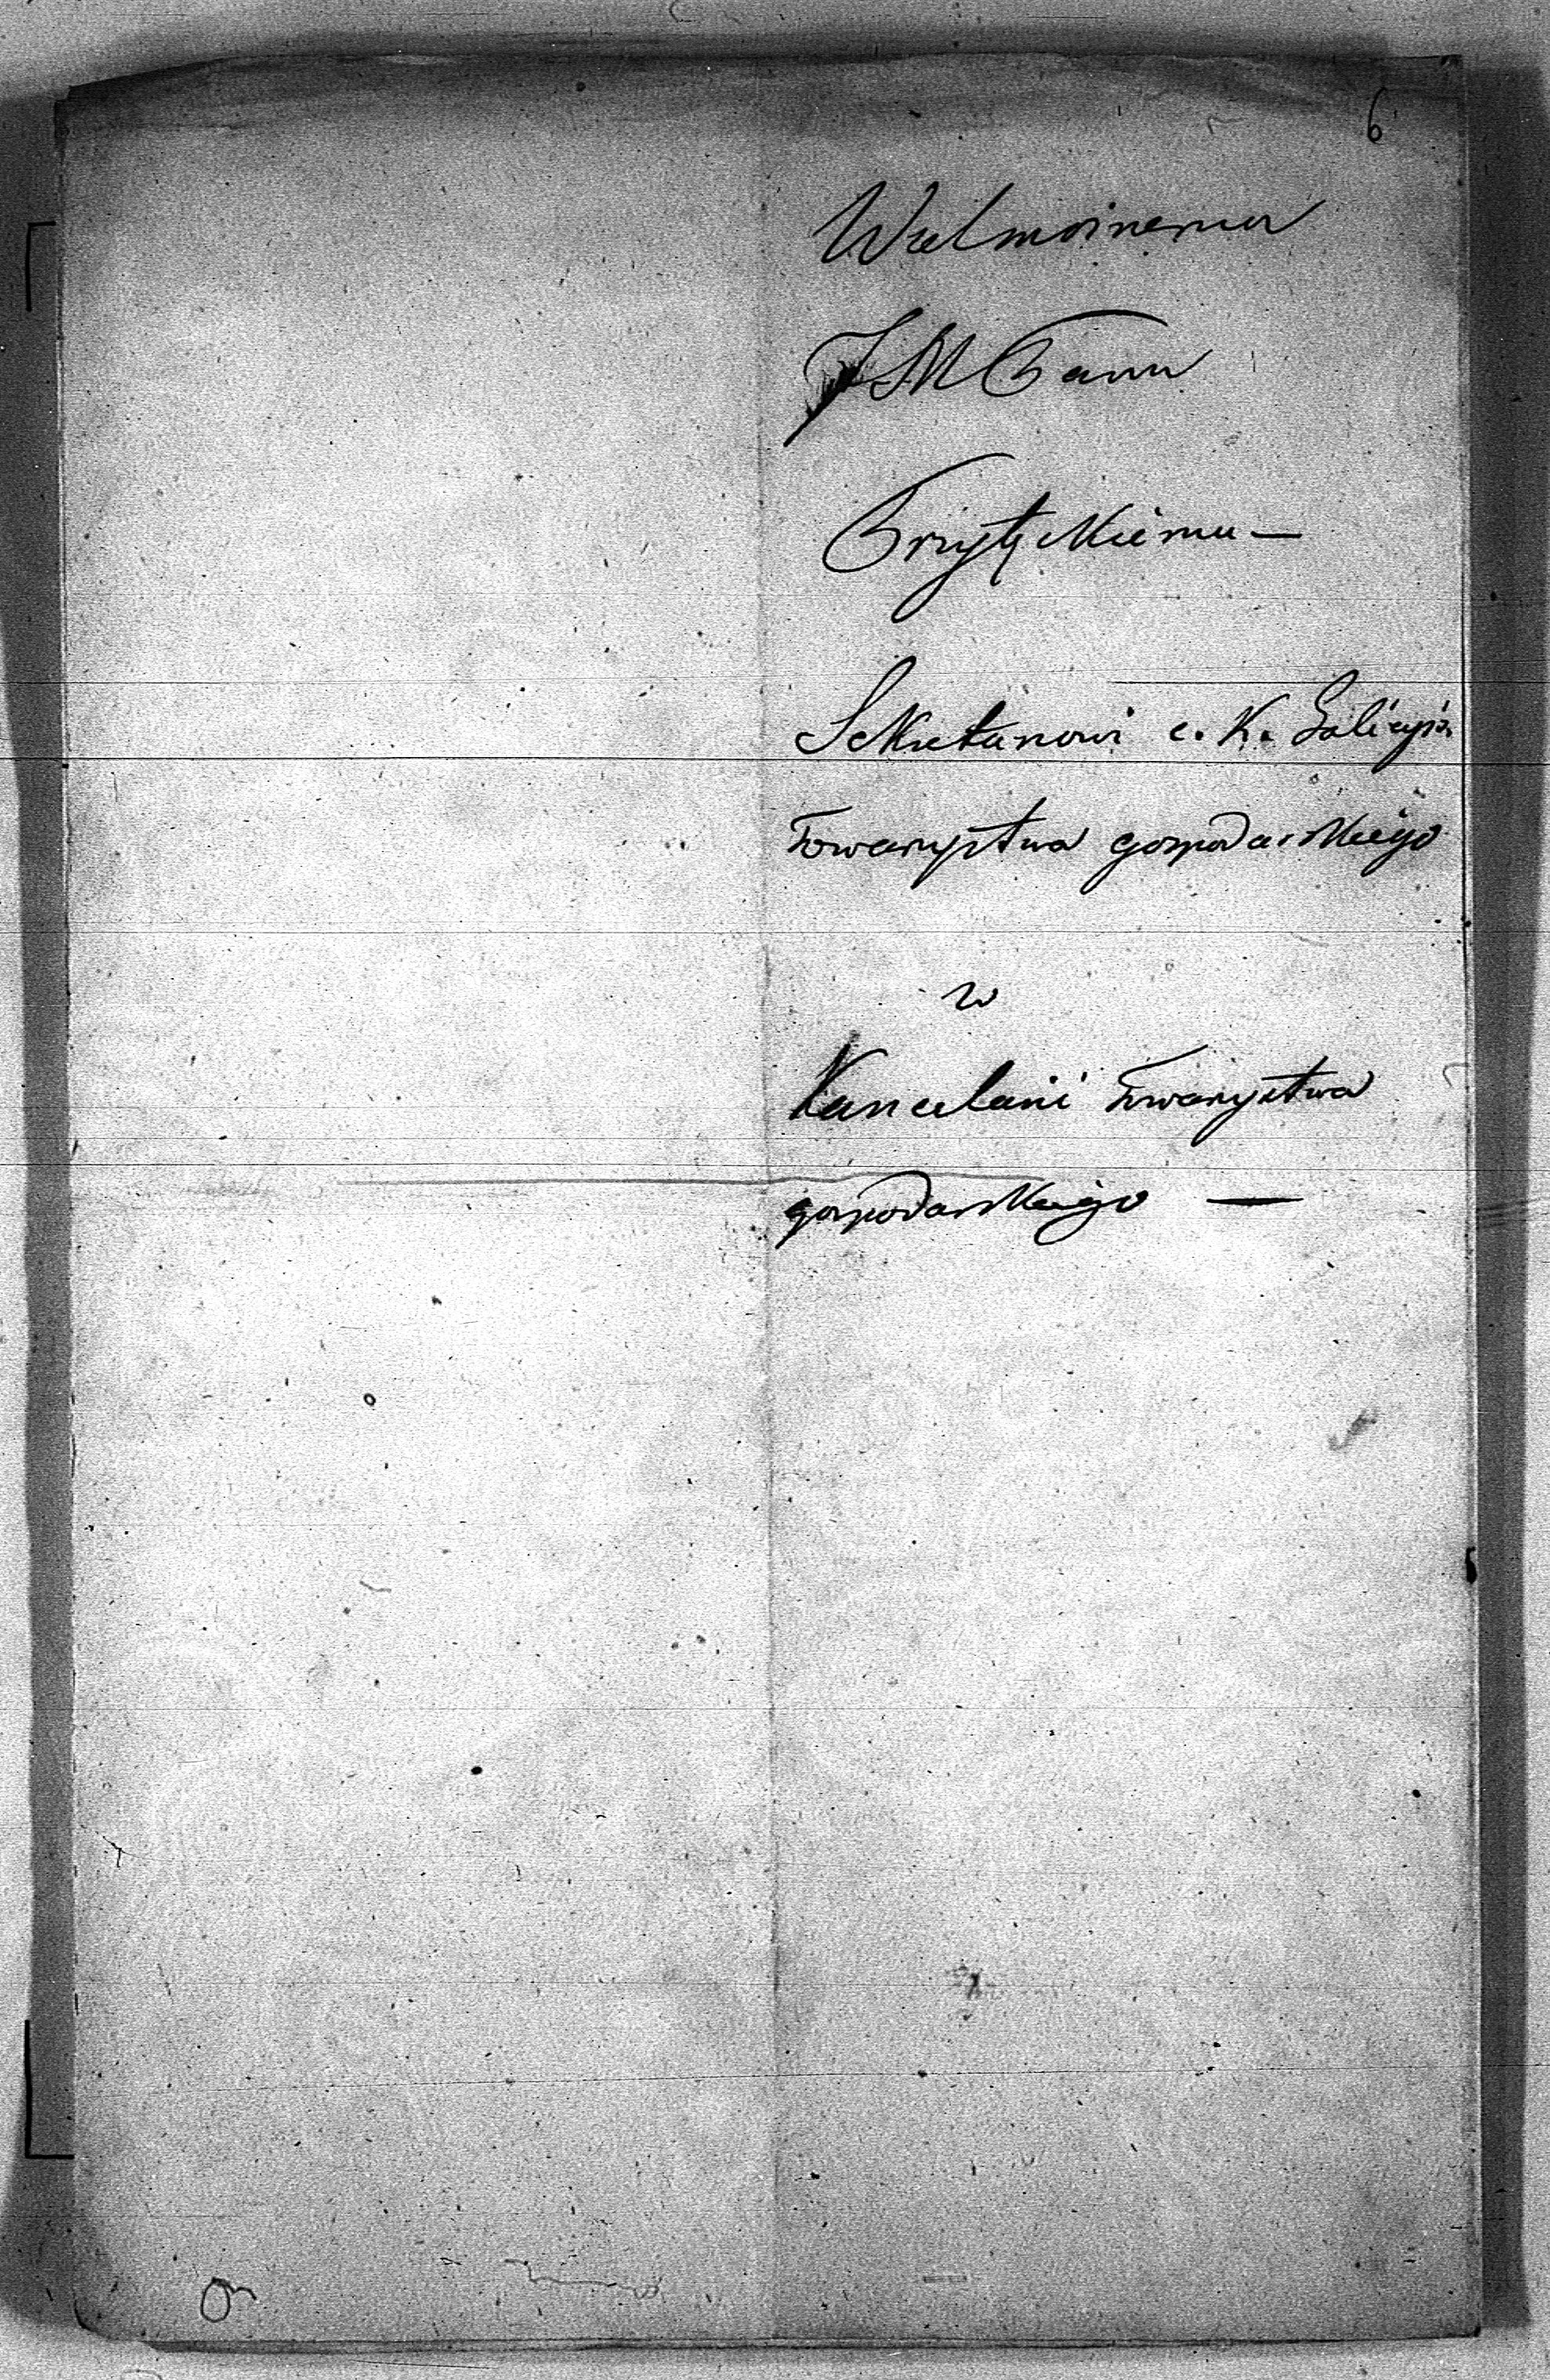 6
Wielmożnemu
JM Panu
Przyłęckiemu —
Sekretarzowi c. K. Galicyjs.
Towarzystwa gospodarskiego
w
Kancelarii Towarzystwa
gospodarskiego —